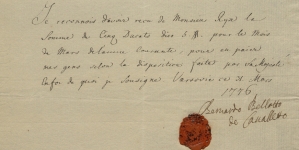 Je reconnois d'avoir recu de Monsieur Ryx la
Somme de Cinq Ducats dico 5 #. pour le Mois
de Mars de l'année Courante, pour en païer
mes gens selon la disposition faite par sa Majesté
Enfoi de quoi je Soussigne Varsovie ce 31 Mars
1776
Bernardo Bellotto
de Canaletto